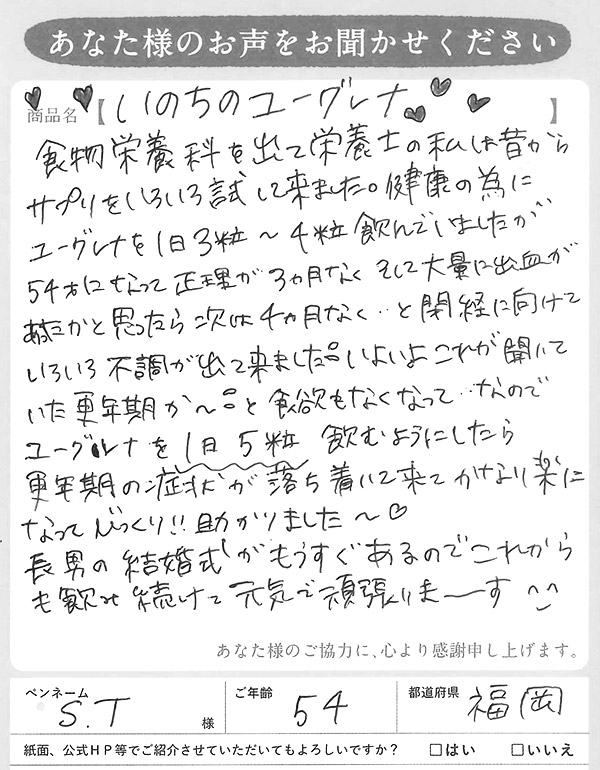 あなた様のお声をお聞かせください
商品名【いのちのユーグレナ】
食物栄養科を出て栄養士の私は昔から
サプリをいろいろ試して来ました。健康の為に
ユーグレナを1日3粒～4粒飲んでいましたが
54才になって正理が3カ月なくそして大量に出血が
あったかと思ったら次は4カ月なく‥と閉経に向けて
いろいろ不調が出て来ました。いよいよこれが聞いて
いた更年期か～。と食欲もなくなって‥なので
ユーグレナを1日5粒飲むようにしたら
更年期の症状が落ち着いて来てかなり楽に
なってびっくり!!助かりました～♡
長男の結婚式がもうすぐあるのでこれから
も飲み続けて元気で頑張りまーす
あなた様のご協力に、心より感謝申し上げます。
ペンネーム S.T 様 ご年齢 54 都道府県 福岡
紙面、公式HP等でご紹介させていただいてもよろしいですか？ □はい □いいえ